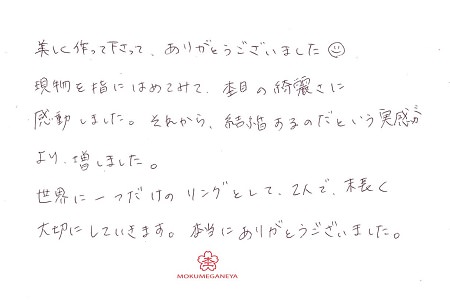 美しく作って下さって、ありがとうございました☺
現物を指にはめてみて、杢目の綺麗さに
感動しました。それから、結婚するのだという実感が
より、増しました。
世界に一つだけのリングとして、2人で、末長く
大切にしていきます。本当にありがとうございました。
MOKUMEGANEYA